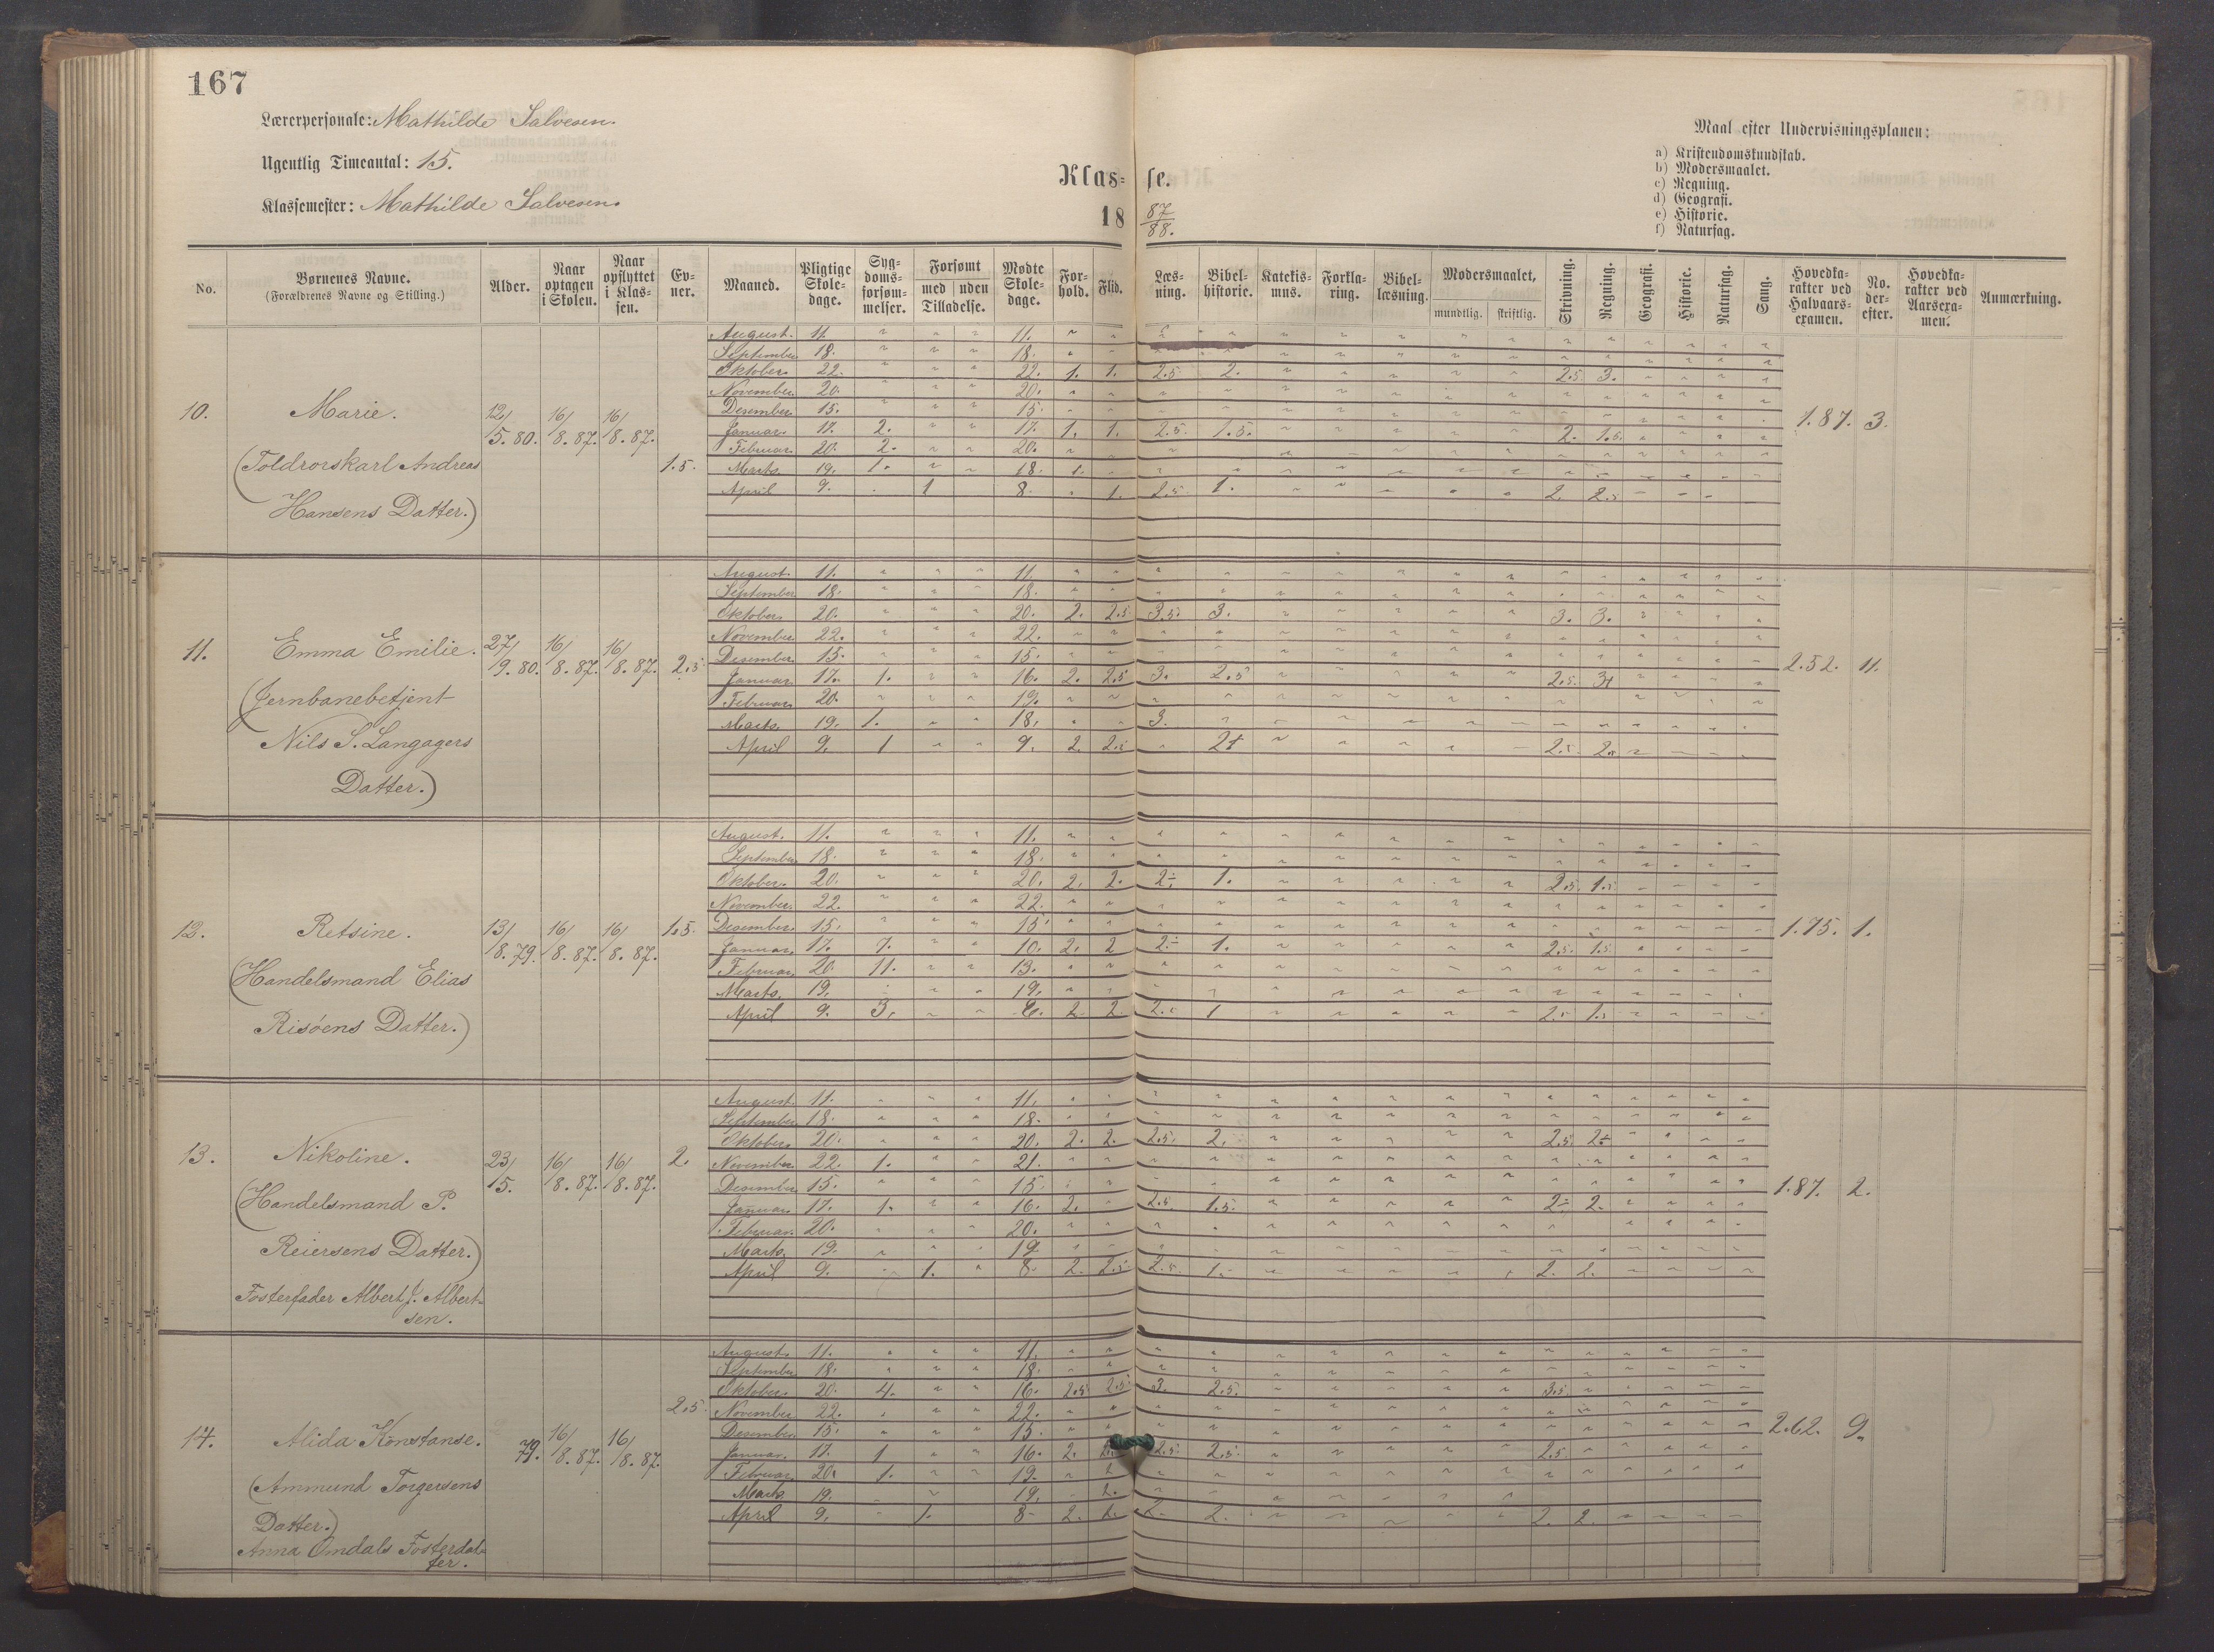 167
Lærerpersonale: Mathilde Salvesen.
Ugentlig Timeantal: 15.
Klassemester: Mathilde Salvesen.
Klas= se.
18 87/88.
Maal efter Undervisningsplanen:
a) Kristendomskundskab.
b) Modersmaalet.
c) Regning.
d) Geografi.
e) Historie.
f) Naturfag.
No. Børnenes Navne. (Forældrenes Navne og Stilling.) Alder. Naar optagen i Skolen. Naar opflyttet i Klas=sen. Ev=ner. Maaned. Pligtige Skole=dage. Syg=doms=forsøm=melser. Forsømt med uden Tilladelse. Mødte Skole=dage. For=hold. Flid. Læs=ning. Bibel=historie. Katekis=mus. Forkla=ring. Bibel=læsning. Modersmaalet, mundtlig. skriftlig. Skrivning. Regning. Geografi. Historie. Naturfag. Sang. Hovedka=rakter ved Halvaars=examen. No. der=efter. Hovedka=rakter ved Aarsexa=men. Anmærkning.
10. Marie. 12/5.80. 16/8.87. 16/8.87. 1.5. 1.87. 3.
(Toldrorskarl Andreas
Hansens Datter.)
August. 11. 11.
September 18. 18.
Oktober. 22. 22. 1. 1. 2.5 2. 2.5 3.
November 20. 20.
Desember 15. 15.
Januar. 17. 2. 17. 1. 1. 2.5. 1.5. 2. 1.5.
Februar 20. 2. 20.
Marts. 19. 1. 18. 1.
April 9. 1 8. 1. 2.5. 1. 2. 2.5
11. Emma Emilie. 27/9.80. 16/8.87. 16/8.87. 2.5 2.52. 11.
(Jernbanebetjent
Nils S. Langagers
Datter.)
August. 11. 11.
September 18. 18.
Oktober. 20. 20. 2. 2.5 3.5. 3. 3. 3.
November 22. 22.
Desember 15. 15.
Januar 17. 1. 16. 2. 2.5 3. 2.5 2.5.
Februar 20. 19.
Marts. 19. 1. 18. 3.
April 9. 1 9. 2. 2.5
12. Retsine. 13/8.79. 16/8.87. 16/8.87. 1.5. 1.75. 1.
(Handelsmand Elias
Risøens Datter.)
August. 11. 11.
September 18. 18.
Oktober. 20. 20. 2. 2. 2÷ 1. 2.5. 1.5.
November. 22. 22.
Desember. 15. 15.
Januar. 17. 7. 10. 2. 2 2÷ 1. 2.5. 1.5.
Februar 20. 11. 13.
Marts. 19. 19.
April 9. 3. 6. 2. 2. 1
13. Nikoline. 23/5. 16/8.87. 16/8.87. 2. 1.87. 2.
(Handelsmand P.
Reiersens Datter.)
Fosterfader Albert J. Albert-
sen.
August. 11. 11.
September 18. 18.
Oktober. 20. 20. 2. 2. 2.5. 2. 2.5.
November. 22. 1. 21.
Desember 15. 15.
Januar. 17. 1. 16. 2. 2.5. 1.5. 2÷ 2.
Februar. 20. 20.
Marts. 19. 19
April 9. 1. 8. 2. 2.5 2.5. 1. 2. 2.
14. Alida Konstanse. 79. 16/8.87. 16/8.87. 2.5. 2.62. 9.
(Ammund Torgersens
Datter.)
Anna Omdals Fosterdat-
ter.
August. 11. 11.
September 18. 18.
Oktober. 20. 4. 16. 2.5 2.5 3. 2.5. 3.5.
November 22. 22.
Desember. 15. 15.
Januar. 17. 1 16. 2. 2.5. 2.5. 2.5.
Februar 20. 1. 19. 2
Marts 19. 19. 2.
April 9. 1. 8 2. 2. 2. 2. 2. 2.